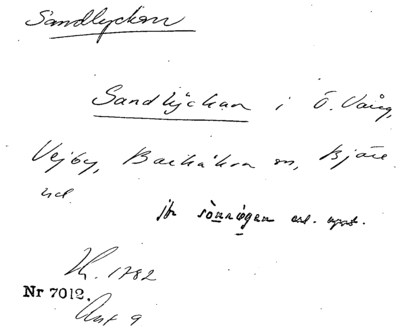 Sandlyckan
Sandlyckan i Ö. Vång,
Vejby, Backåkra sn, Bjäre
hd
jfr sònnagen enl. uppt.
Kh. 1782
Nr 7012.
Akt 9